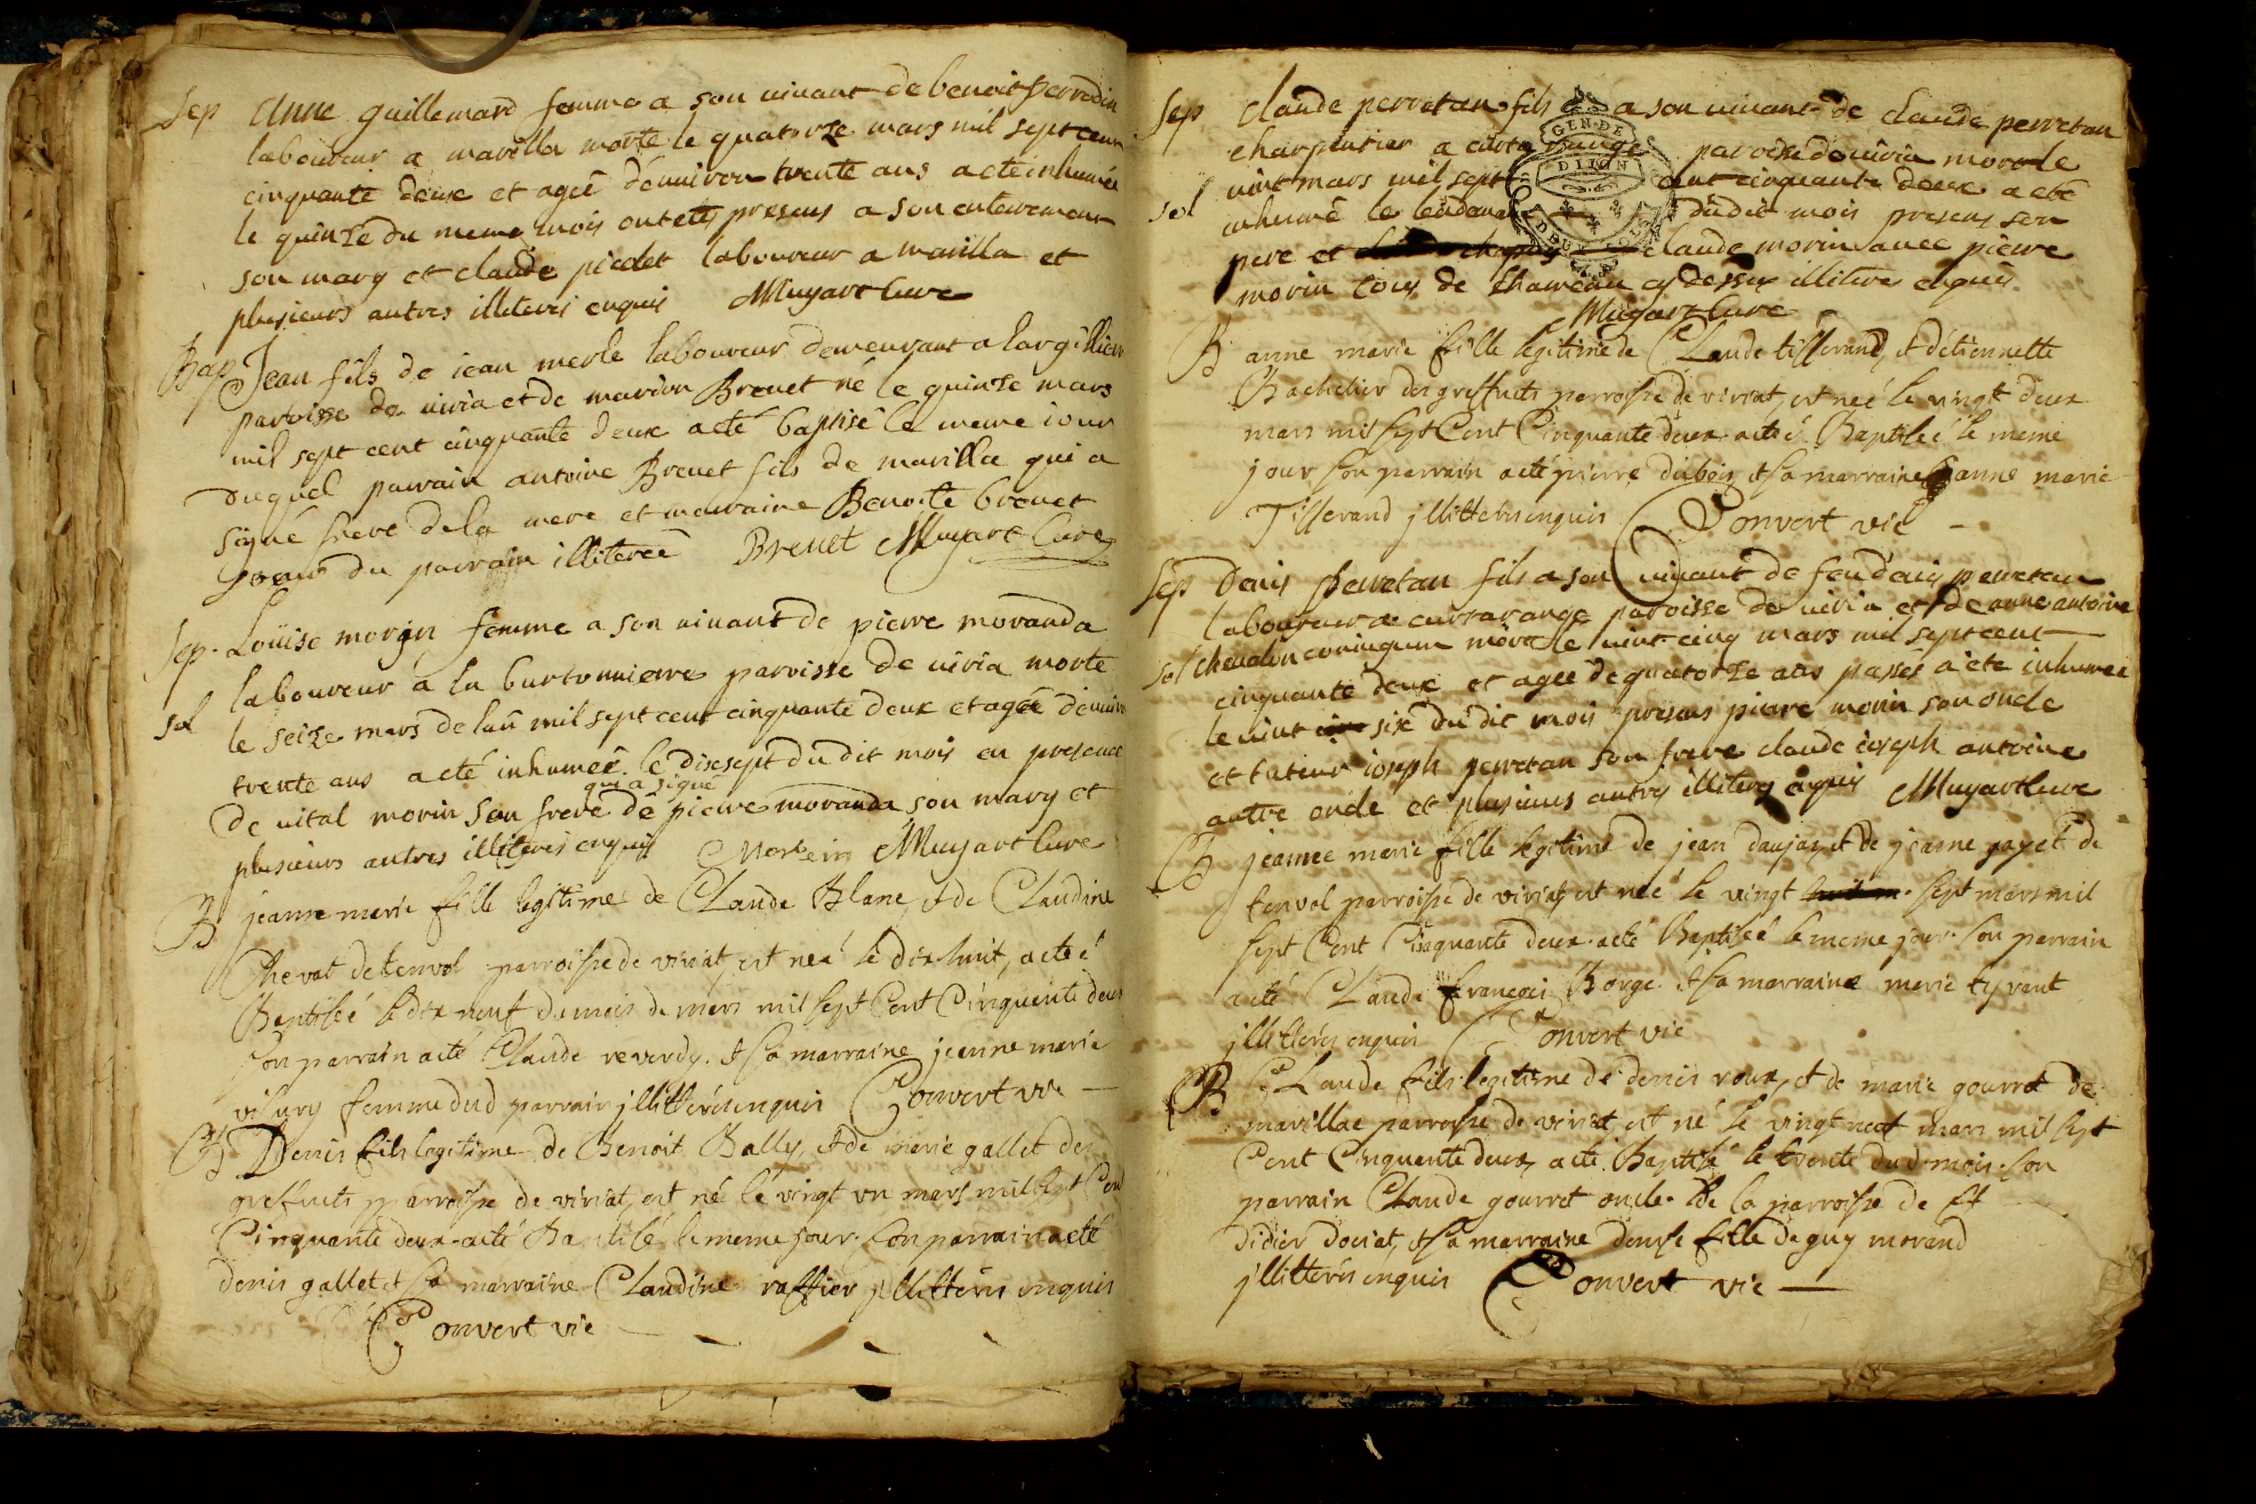 Sep Anne guillemard femme a son vivant de benoit perrodin
laboureur a marilla morte le quatorze mars mil sept cent
cinquante deux et agée dénuiron trente ans a eté inhumée
le quinze du meme mois ont etés presens a son enterement
son mary et claude picolet laboureur a marilla et
plusieurs autres illiterés enquis Muyart Curé
Bap Jean fils de iean merle laboureur demeurant a largilliere
paroisse de uiria et de marion Breuet né le quinze mars
mil sept cent cinquante deux a eté baptisé le meme iour
duquel parrain antoine Breuet fils de marilla qui a
signé frere de la mere et marraine Benoite breuet
soeur du parrain illiterée Breuet Muyart Curé
Sep. Loüise morin femme a son uiuant de pierre moranda
laboureur a la burtonniere paroisse de uiria morte
sol le seize mars de lan mil sept cent cinquante deux et agée dénuiron
trente ans a eté inhumée le dixsept du dit mois en presence
qui a signé
de uital morin son frere de pierre moranda son mary et
plusieurs autres illiterés enquis Morein Muyart Curé
B jeanne marie fille legitime de Claude Blanc, et de Claudine
Chevat de tenvol parroisse de viriat, est neé le dix huit, a eté
Baptiseé le dix neuf du mois de mars mil sept Cent Cinquente deux
son parrain a eté Claude reverdy. et sa marraine jeanne marie
femme dud parrain jllitterés enquis Convert vic
B Denis fils legitime de Benoit Bally, et de marie gallet des
greffiets parroisse de viriat, est né le vingt vn mars mil sept Cent
Cinquante deux. a eté Baptisé le meme jour. son parrain a eté
denis gallet et sa marraine Claudine raffier jllitterés enquis
Convert vic
Sep claude perretan fils a son uiuant de claude perretan
charpentier a curtarange paroisse de uiria mort le
vint mars mil sept cent cinquante deux a eté
sol inhumé le lendemain dudit mois presens son
pere et claude morin auec pierre
morin tous de hameau cy dessus illiterés enquis
Muyart Curé
B anne marie fille legitime de Claude tisserand, et détiennette
Bachelier des greffiets parroisse de viriat, est neé le vingt deux
mars mil sept Cent Cinquante deux. a eté Baptiseé le meme
jour son parrain a eté pierre dubois et sa marraine anne marie
Tisserand jllitterés enquis Convert vic
Sep Denis perretan fils a son uiuant de feu denis perretan
laboureur a curtarange paroisse de uiria et de anne antoine
sol cheualon coniugum mort le uint cinq mars mil sept cent
cinquante deux et agée de quatorze ans passés a eté inhumée
le uint six du dit mois presens pierre morin son oncle
et tuteur ioseph perretan son frere claude ioseph antoine
autre oncle et plusieurs autres illiterés enquis Muyart Curé
B jeanne marie fille legitime de jean daujat, et de jeanne payet de
tenvol parroisse de viriat, est neé le vingt sept mars mil
sept Cent Cinquante deux. a eté Baptiseé le meme jour. son parrain
a eté Claude françois Borge. et sa marraine marie tyrant
jllitterés enquis Convert vic
B Claude fils legitime de denis roux, et de marie gourret de
marillac parroisse de viriat, est né le vingt neuf mars mil sept
Cent Cinquente deux, a eté Baptisé le trente dud. mois. son
parrain Claude gourret oncle de la parroisse de st
didier dociat, et sa marraine denise fille de guy morand
jllitterés enquis Convert vic
GEN. DE
DIJON